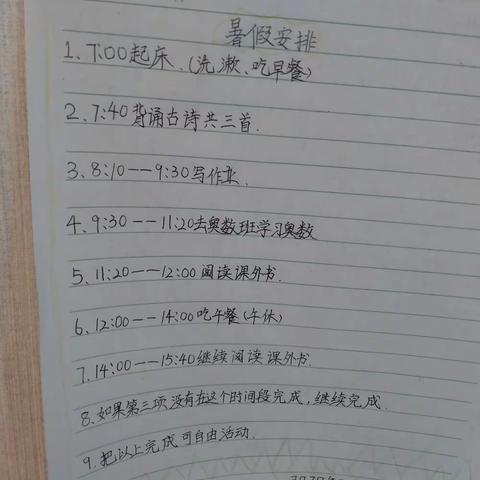 暑假安排
1、7:00起床.(洗漱、吃早餐)
2、7:40背诵古诗共三首.
3、8:10——9:30写作业.
4、9:30——11:20去奥数班学习奥数
5、11:20——12:00阅读课外书.
6、12:00——14:00吃午餐(午休)
7、14:00——15:40继续阅读课外书.
8、如果第三项没有在这个时间段完成,继续完成.
9、把以上完成可自由活动.